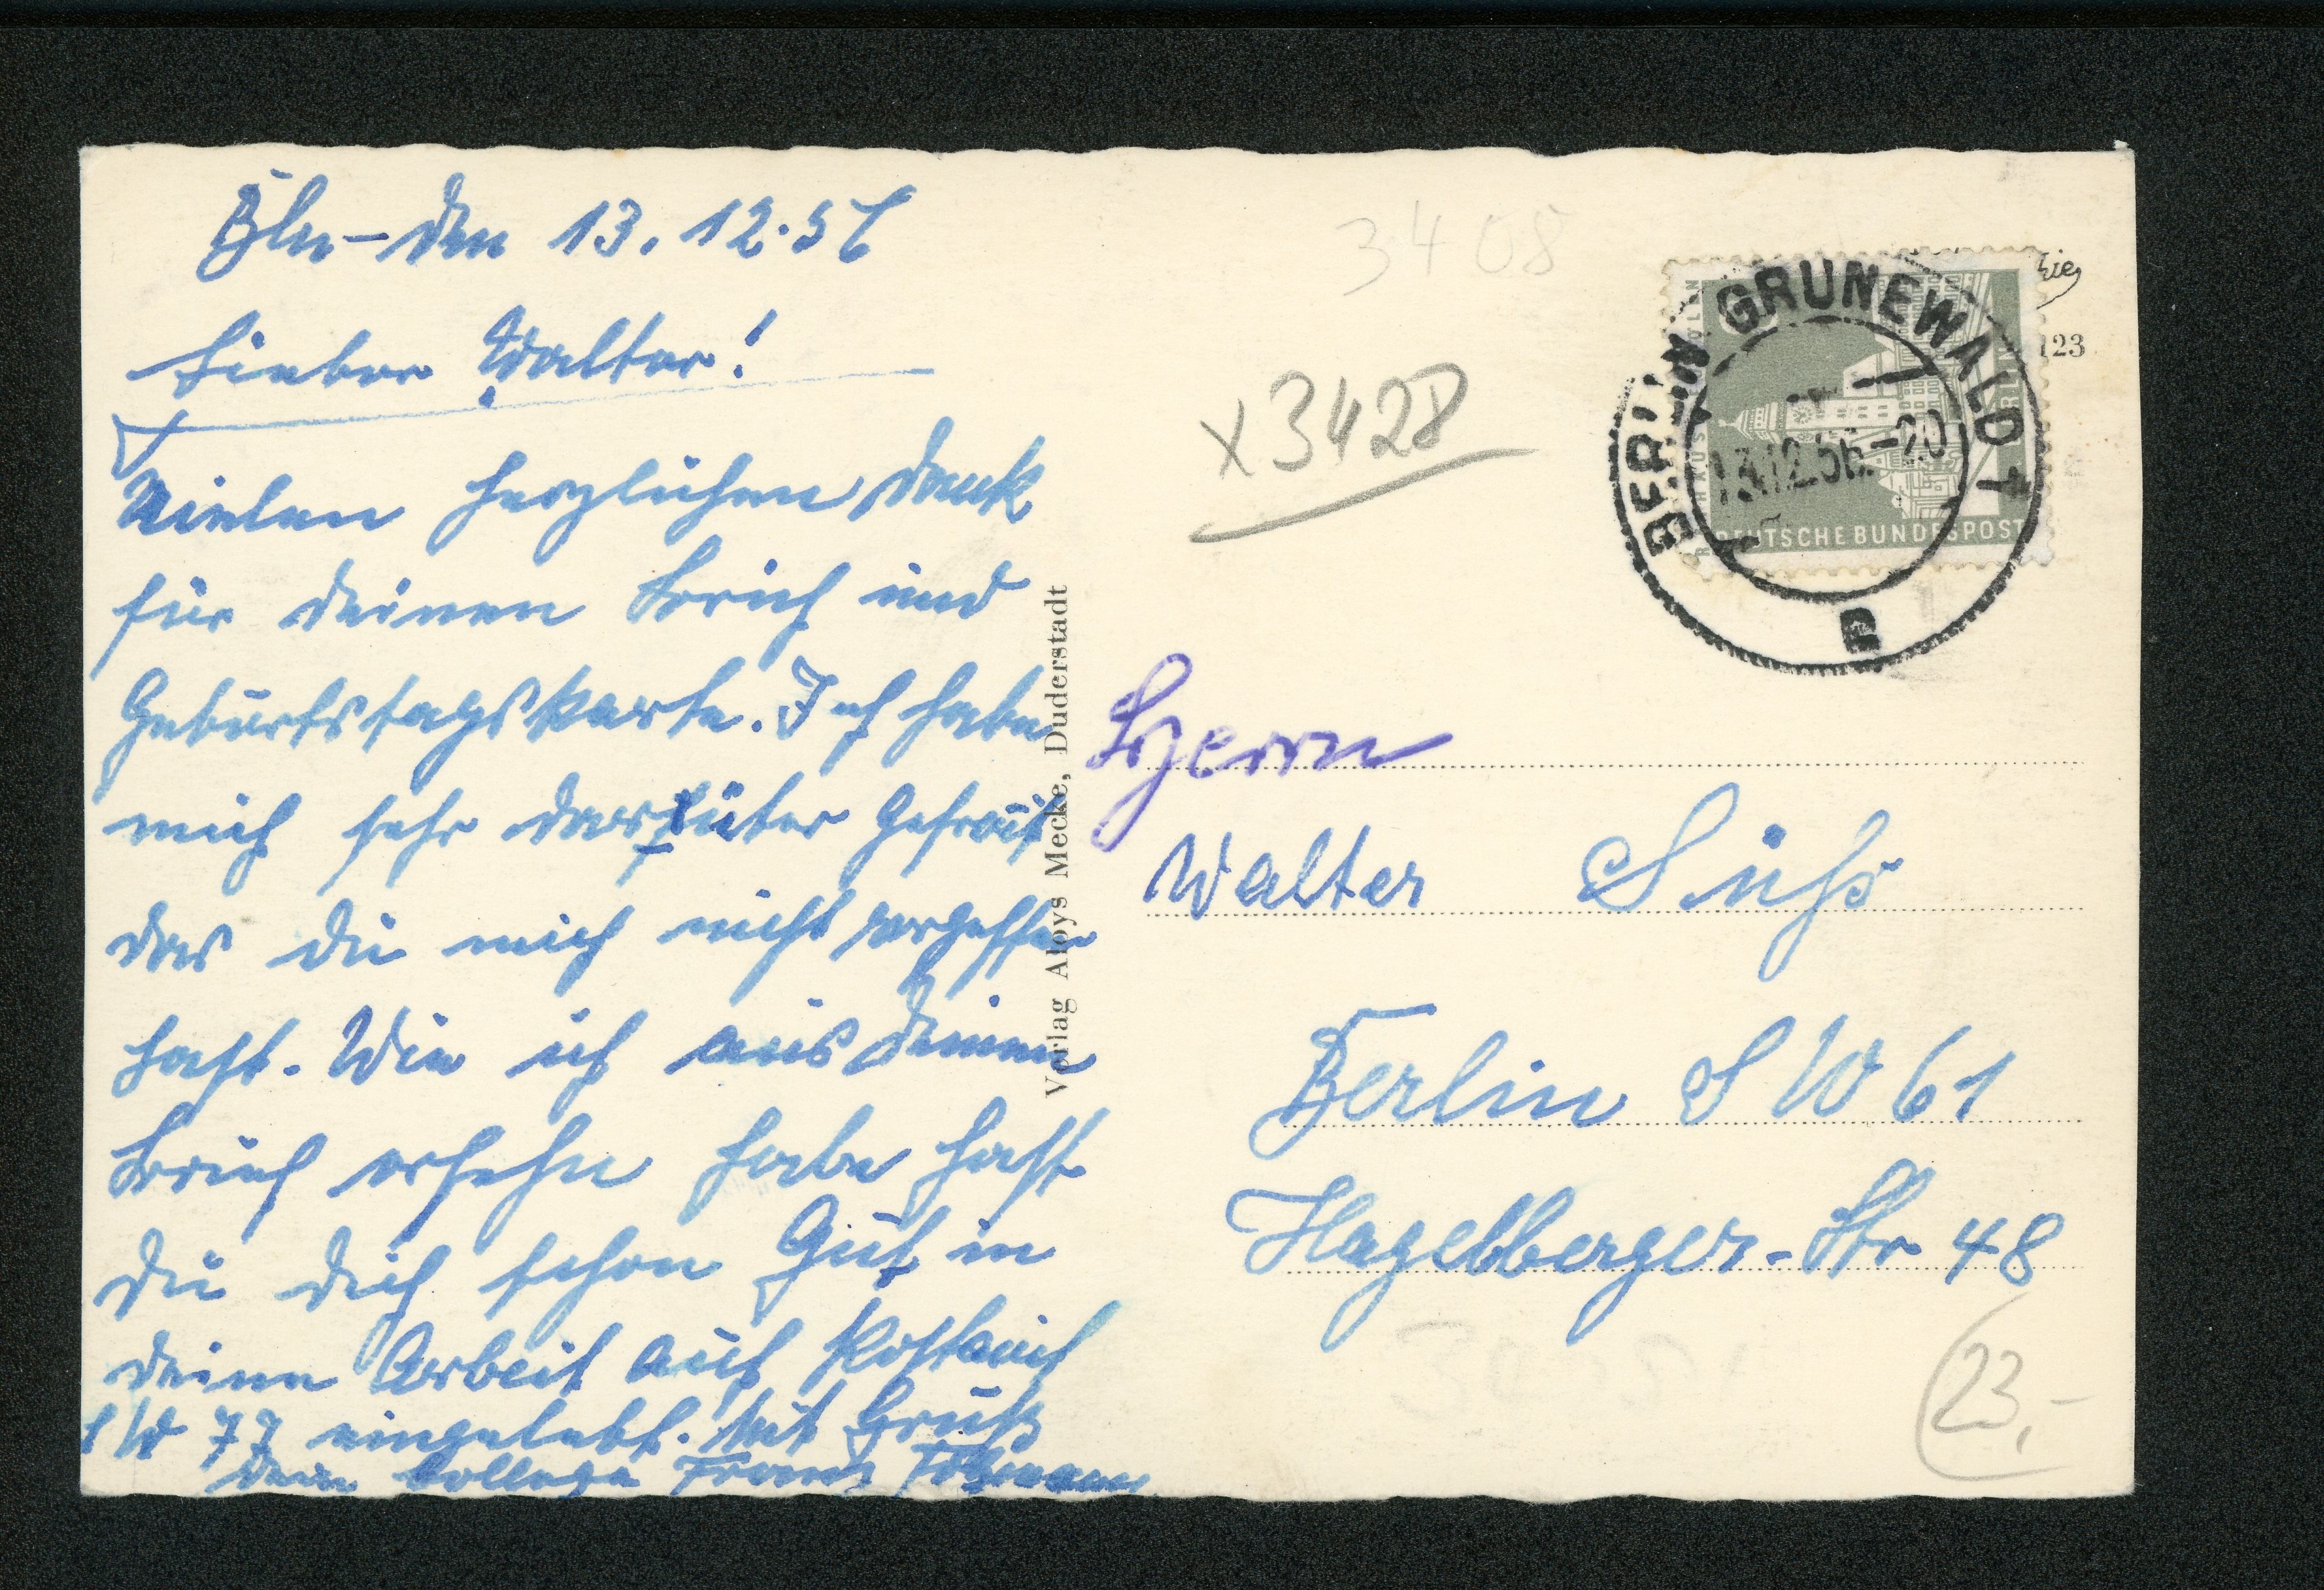 Bln - den 13.12.56
Lieber Walter!
Vielen herzlichen Dank
für deinen Brief und
Geburtstagskarte. Ich habe
mich sehr darüber gefreut
das du mich nicht vergessen
hast. Wie ich aus deinem
Brief ersehn habe hast
du dich schon Gut in
deine Arbeit auf Postamt
SW 77 eingelebt. Mit Gruß
Dein Kollege Franz
Verlag Aloys Mecke, Duderstadt
3408
x3428
BERLIN GRUNEWALD 1
13.12.56.-20
DEUTSCHE BUNDESPOST
123
Herrn
Walter Sühs
Berlin SW 61
Hagelberger-Str 48
23,-